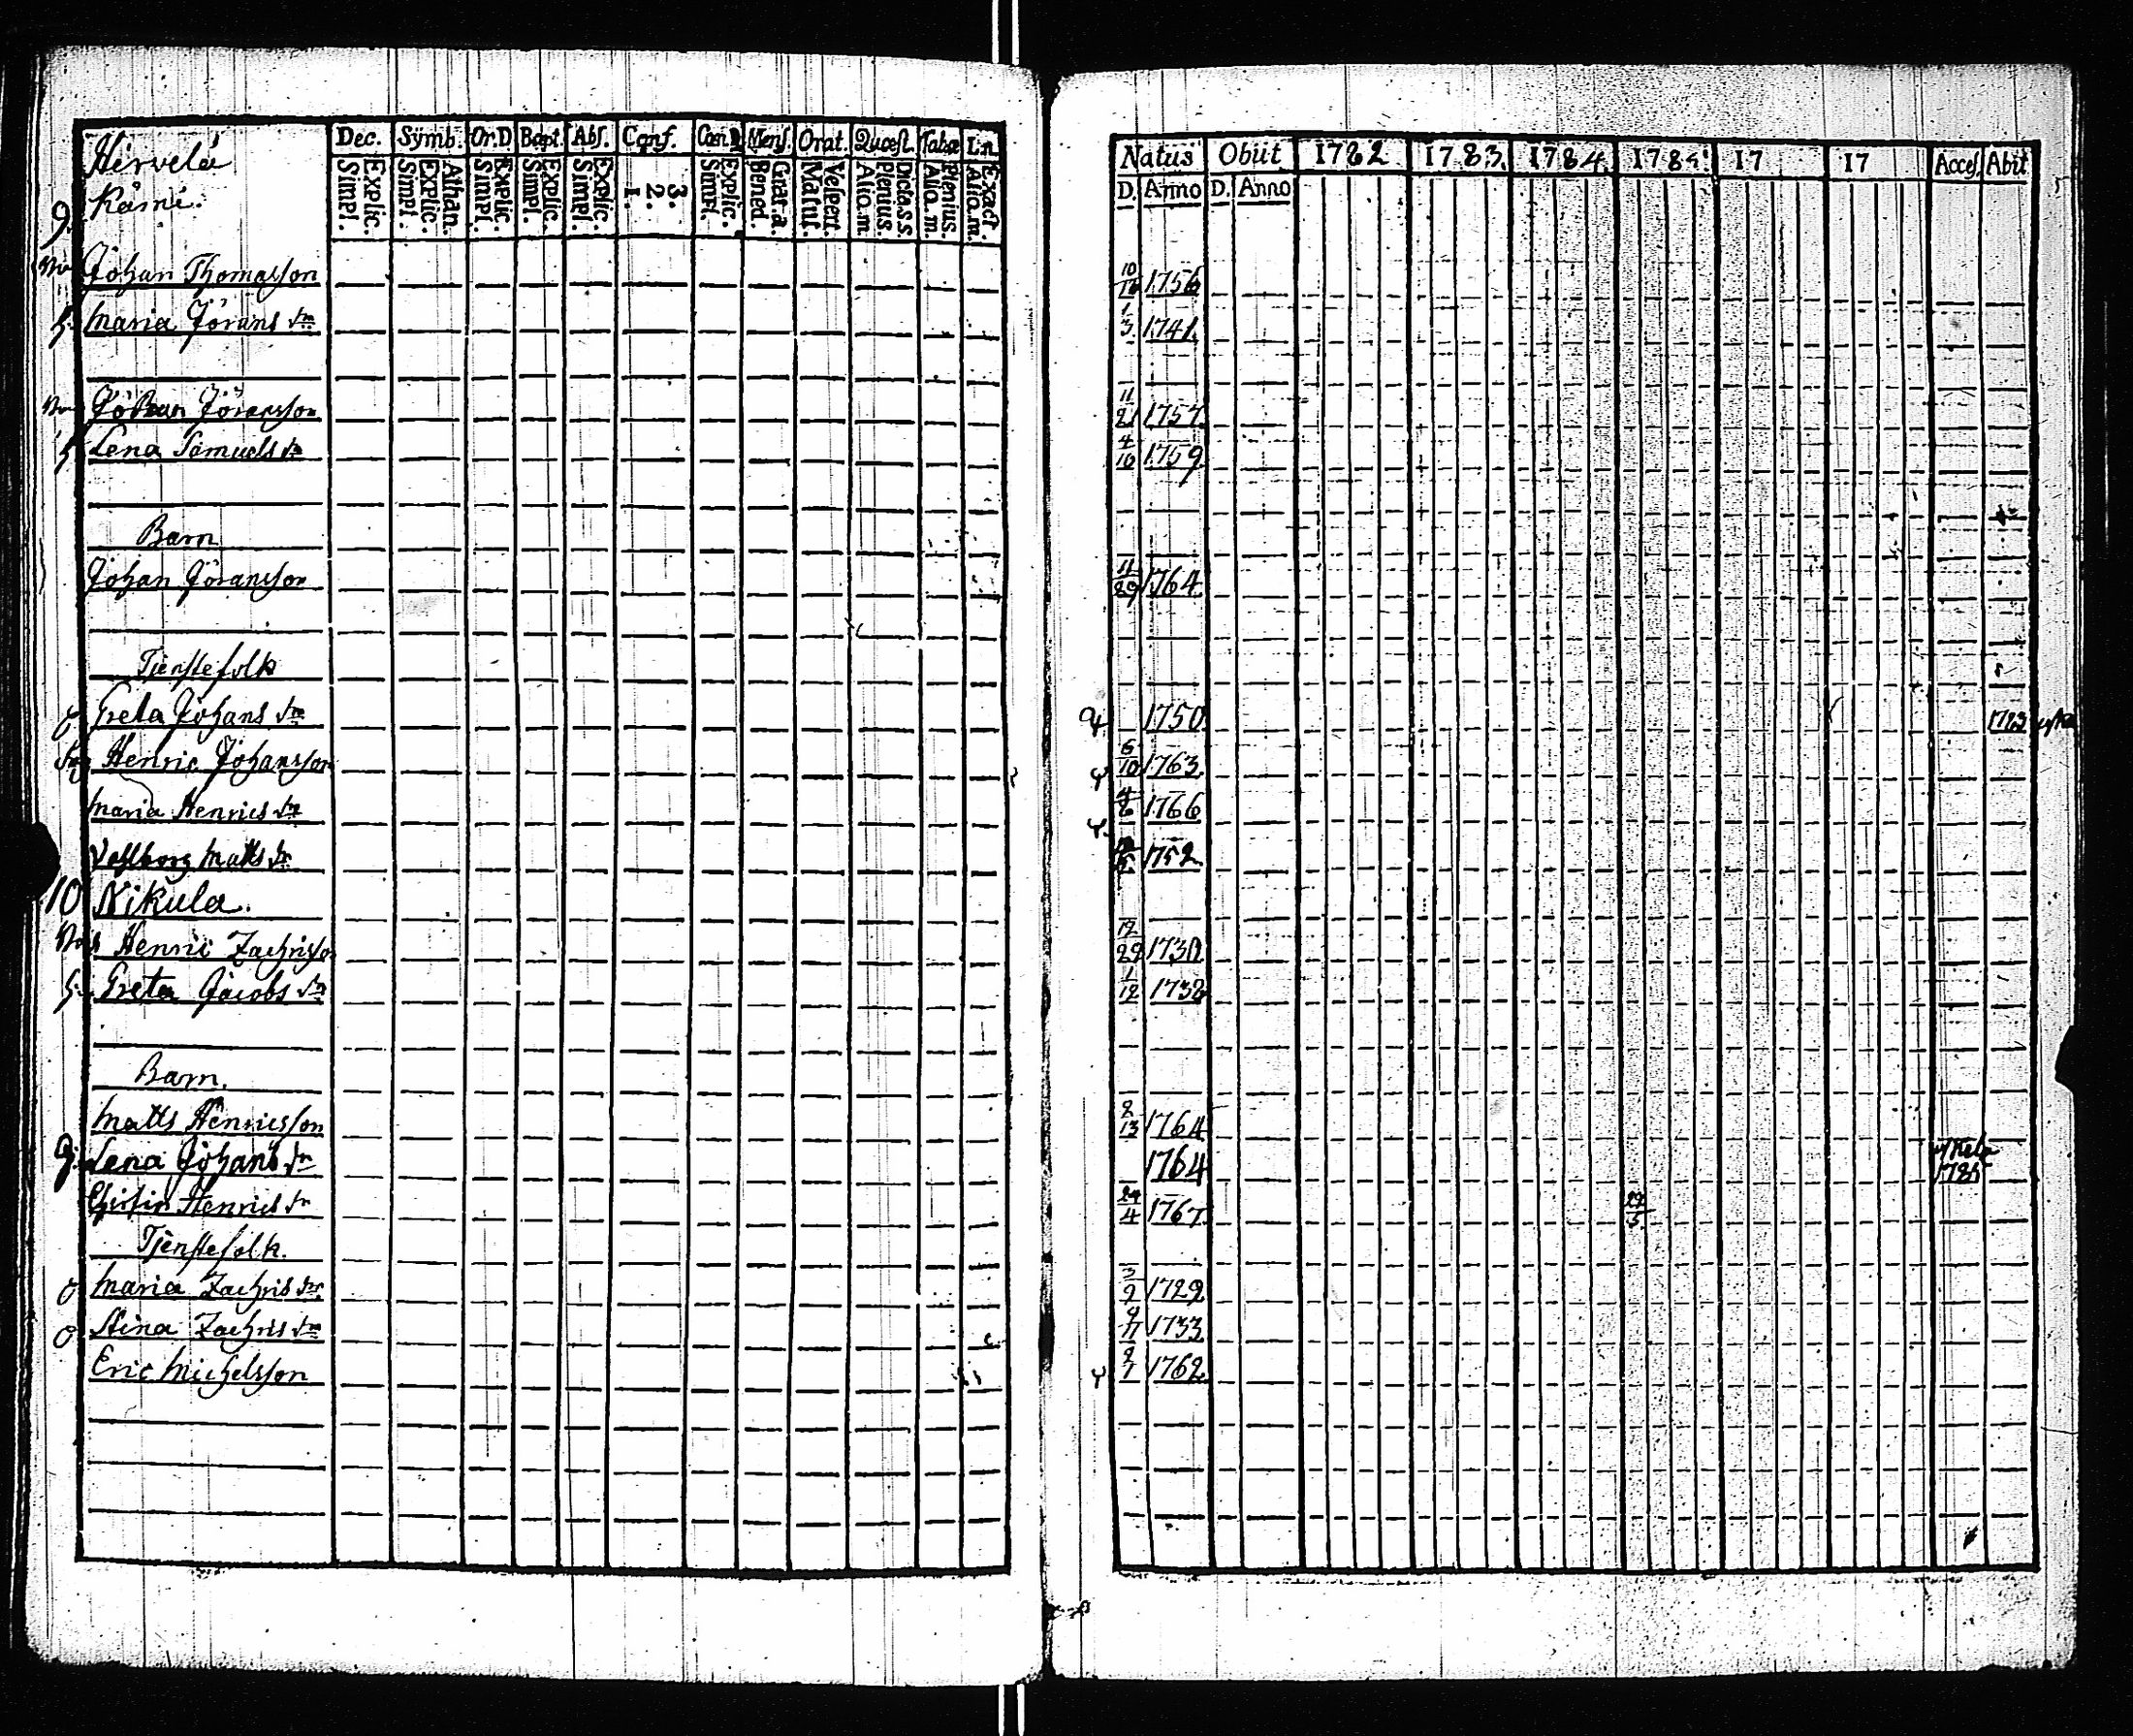 Hirvelä
Dec. Symb. Or.D. Bapt. Abs. Conf. Cœn.D Mens. Orat. Quæst. Tabæ Lin.
Simpl. Explic. Simpl. Explic. Athan. Simpl. Explic. Simpl. Explic. Simpl. Explic. 1. 2. 3. Simpl. Explic. Bened. Gnar.a. Matut. Vespert. Alio.m. Plenius. Dicta.s.s. Alio.m. Plenius. Alio.m. Exact.
9.
Johan Thomasson
h. Maria Jörans dr
Johan Jöransson
h Lena Samuels dr
Barn
Johan Jöransson
Tjenstefolk
Greta Johans dr
Henric Johansson
Maria Henrics dr
Vallborg Matts dr
10 Nikula.
Henric Zachrisson
h. Greta Jacobs dr
Barn.
Matts Henricsson
Lena Johans dr
Christin Henrics dr
Tjenstefolk.
Maria Zachris dr
Stina Zachris dr
Eric Michelsson
Natus Obiit 1782 1783. 1784. 1785. 17 17 Acces. Abiit
D. Anno D. Anno
10/16 1756
1/3 1741.
11/21 1757.
4/16 1759
11/29 1764
1750. 1783
6/10 1763.
4/6 1766
1752
12/29 1730
1/12 1732
2/13 1764
1764
24/4 1767. 27/3
3/2 1729
1733
2/1 1762